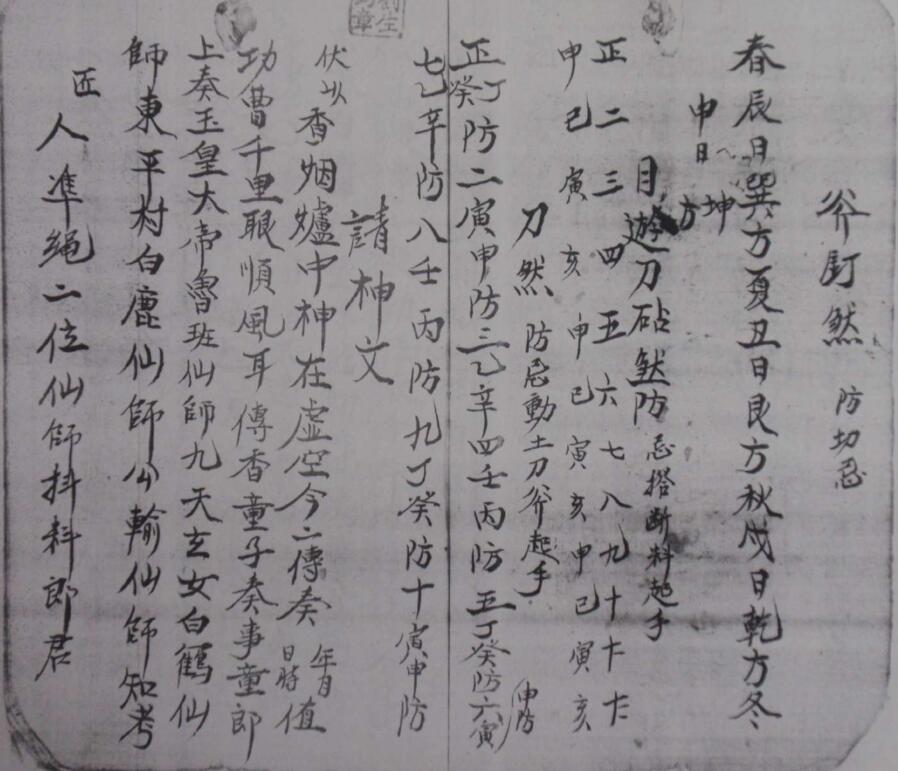 斧釘煞 防切忌
春辰日巽方夏丑日艮方秋戌日乾方冬
申日坤方
目遊刀砧煞防忌搭斷料起手
正二三四五六七八九十十十
申己寅亥申己寅亥申己寅亥
刀煞 防忌動土刀斧起手
正癸丁防二寅申防三乙辛四壬丙防五丁癸防六寅申防
七乙辛防八壬丙防九丁癸防十寅申防
請神文
伏以香烟爐中神在虛空今二傳奏年月日時值
功曹千里眼順風耳傳香童子奏事童郎
上奏玉皇大帝魯班仙師九天玄女白鶴仙
師東平村白鹿仙師公輸仙師知考
匠人準繩二位仙師抖料郎君